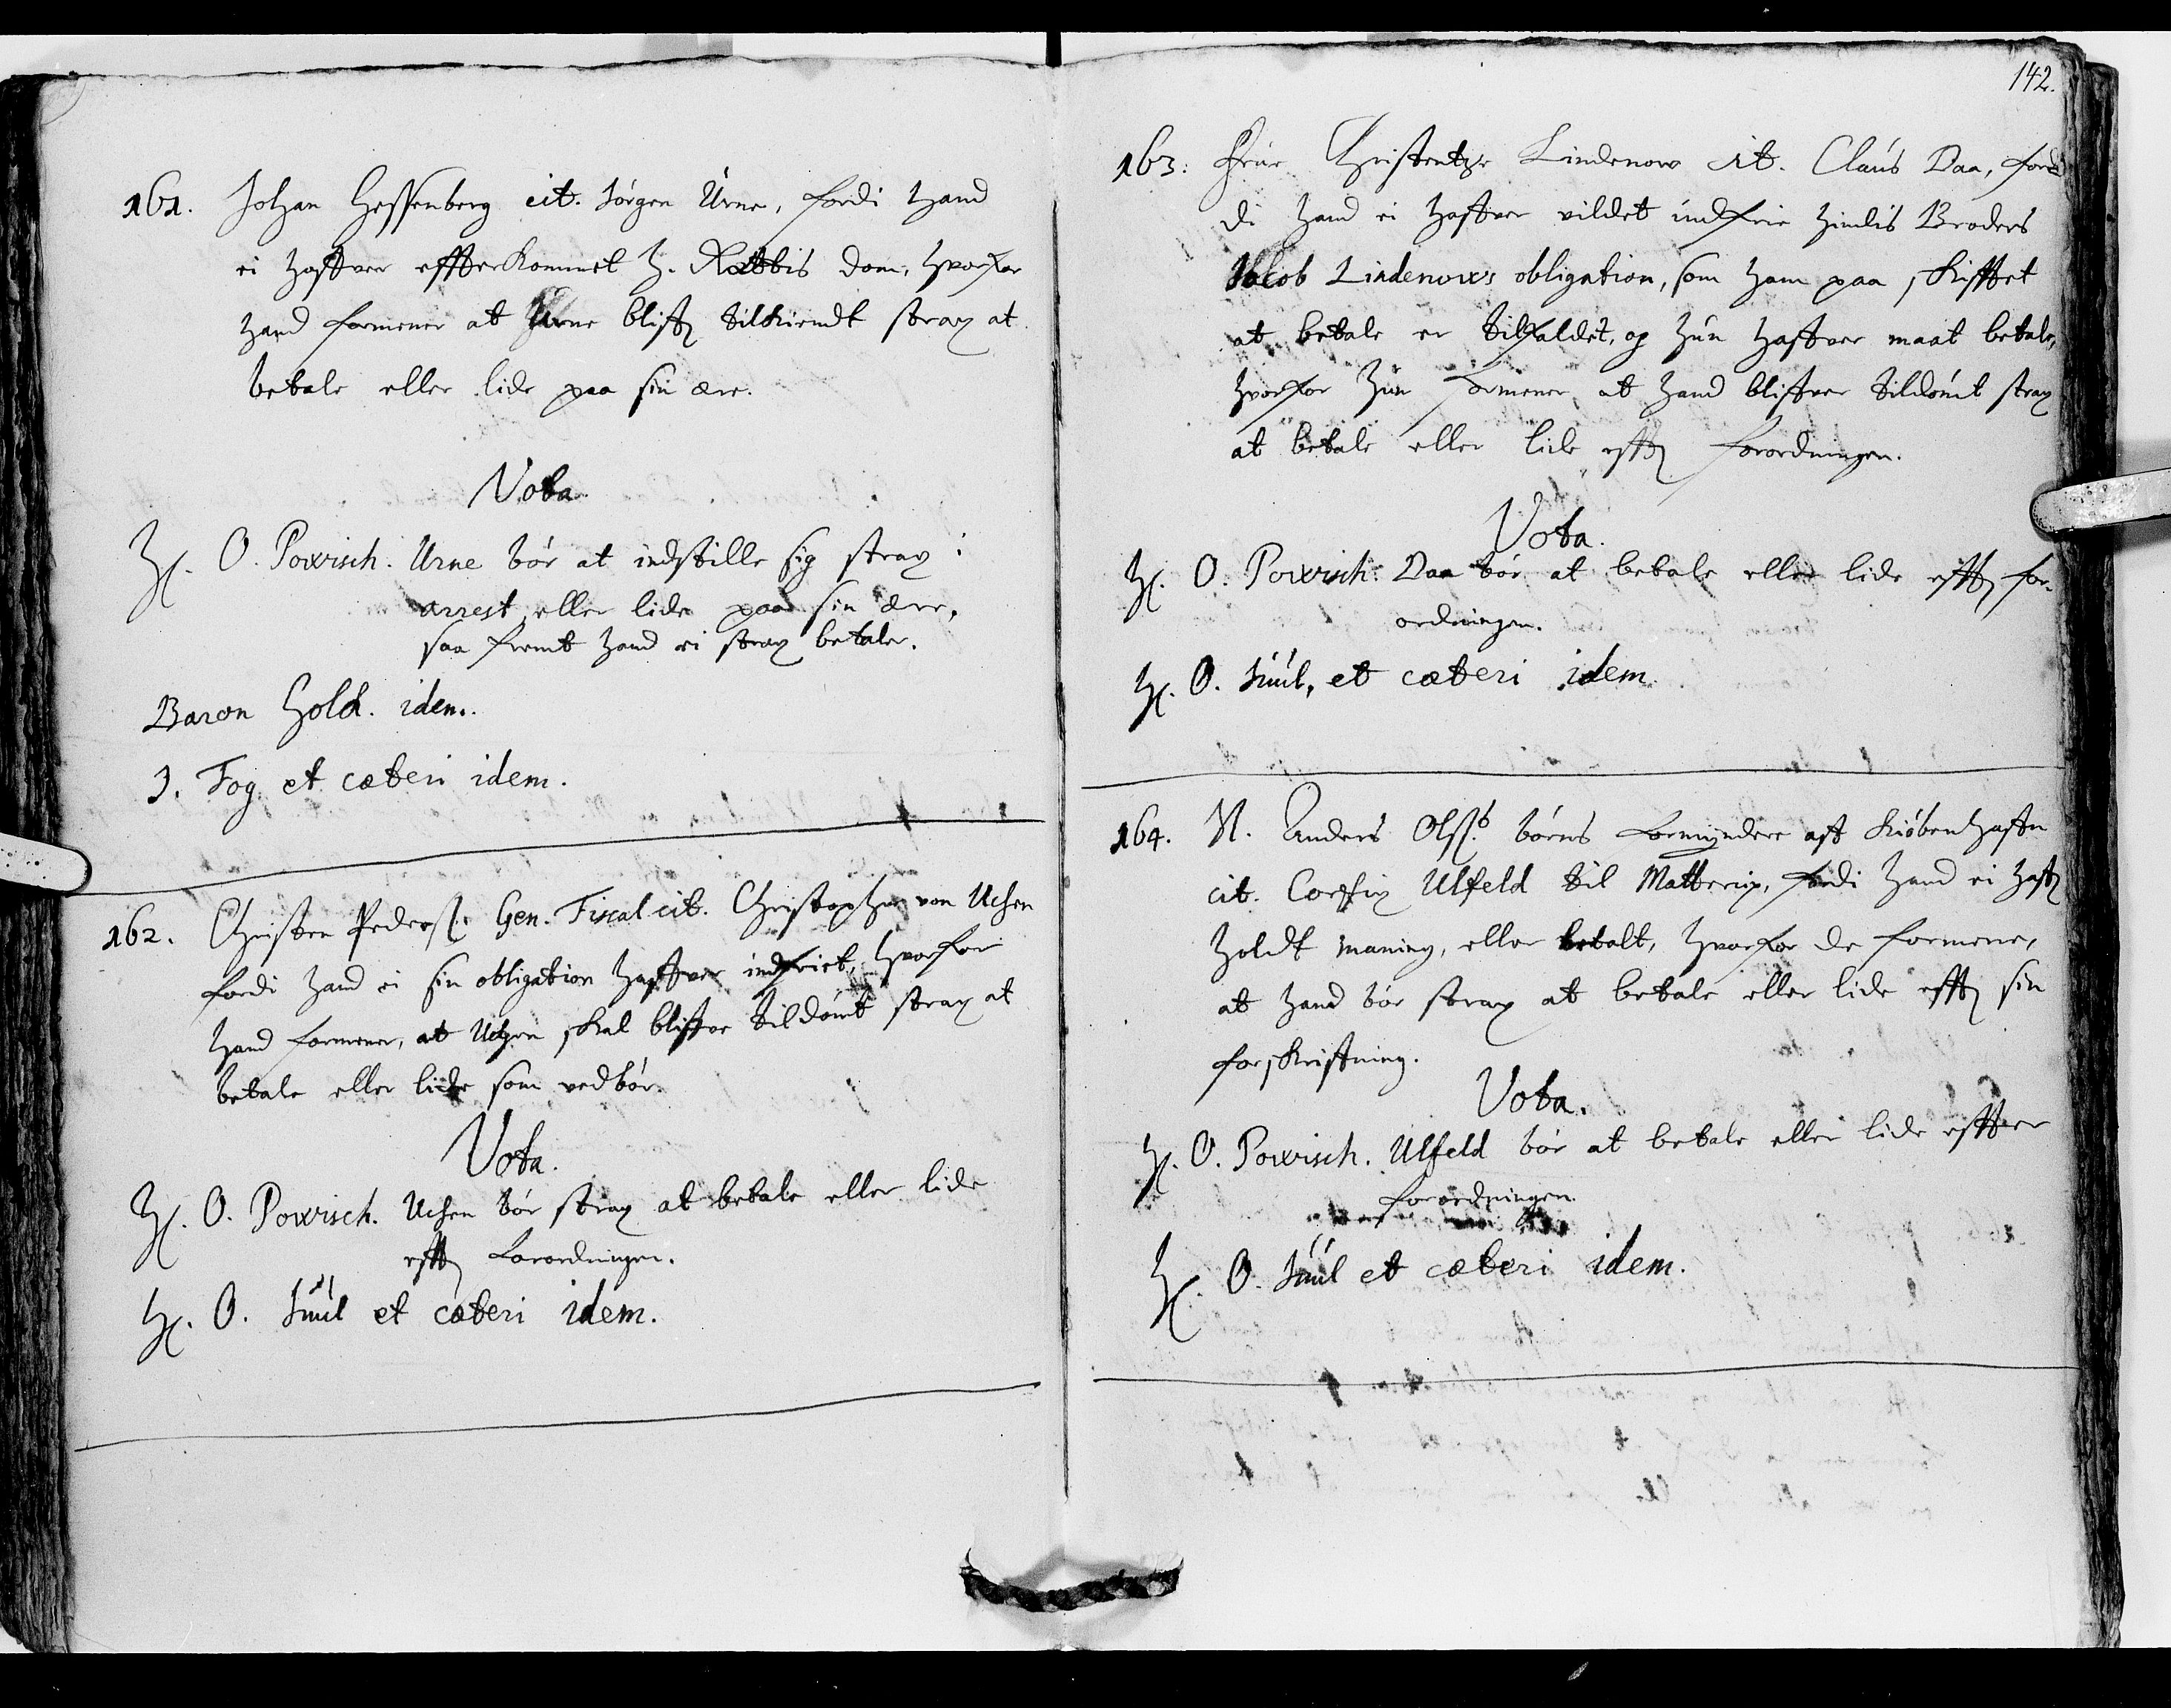 161. Johan Hessenberg cit. Jörgen Urne, fordi hand
ei haffver effterkommet H. Rettis dom, hvorfor
hand formener at Urne bliffr tilkiendt strax at
betale eller lide paa sin ære.
Vota
H. O. Powisch. Urne bör at indstille sig strax i
arrest, eller lide paa sin ære,
saa fremt hand ei strax betaler.
Baron Holck. idem.
J. Fog et cæteri idem.
162. Christen Peders: Gen. Fiscal cit. Christopher von Uchen
fordi hand ei sin obligation haffver indfriet, hvorfor
hand formener, at Uchen skal bliffve tildömt strax at
betale eller lide som vedbör.
Vota.
H. O. Powisch. Uchen bör strax at betale eller lide
efftr forordningen.
H. O. Juul et cæteri idem.
142.
163. Frue Christentze Lindenow cit. Claus Daa, for-
di hand ei haffver vildet indfrie hindis Broders
Jakob Lindenows obligation, som ham paa skifftet
at betale er tilfaldet, og hun haffver maat betale,
hvorfor hun formener, at hand bliffver tildömt strax
at betale eller lide efftr forordningen.
Vota.
H. O. Powisch. Daa bör at betale eller lide efftr for-
ordningen.
H. O. Juul, et cæteri idem.
164. Sl. Anders Olss. börns formyndere aff Kiöbenhaffn
cit. Corfix Ulfeld til Mattrup, fordi hand ei haffr
holdt maning, eller betalt, hvorfor de formene,
at hand bör strax at betale eller lide efftr sin
forskriffning.
Vota.
H. O. Powisch. Ulfeld bör at betale eller lide effter
forordningen.
H. O. Juul et cæteri idem.